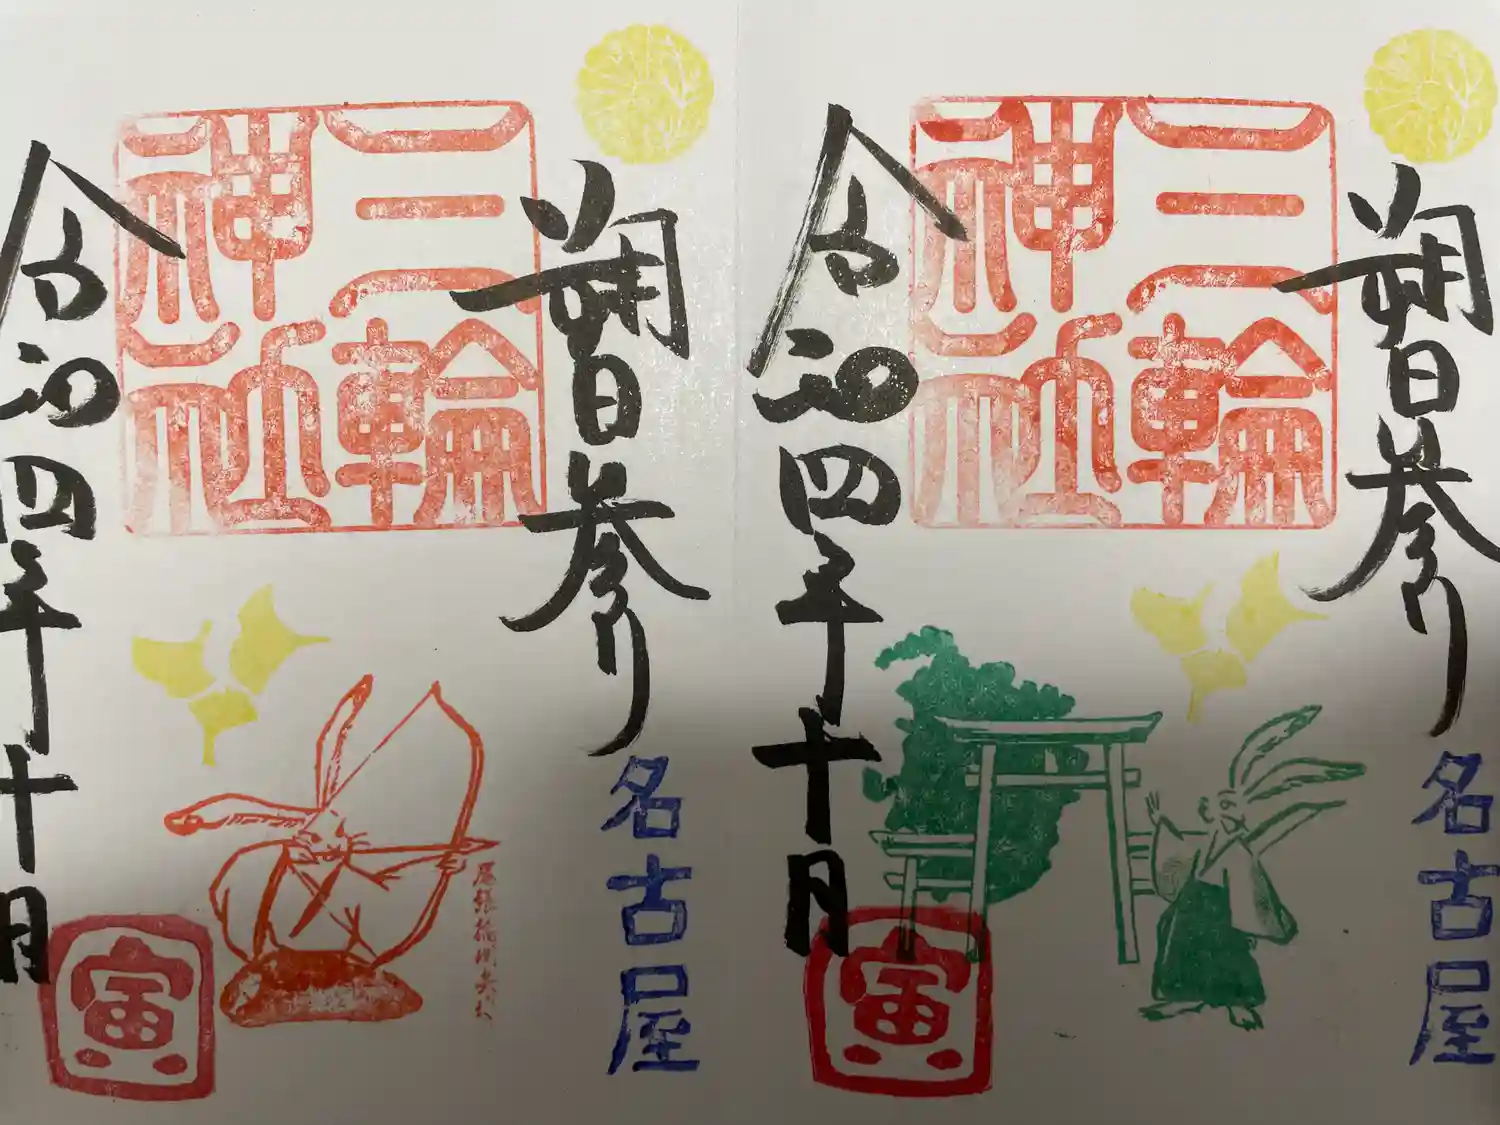 朔日参り
名古屋
三輪神社
令和四年十月
寅
朔日参り
名古屋
三輪神社
令和四年十月
寅